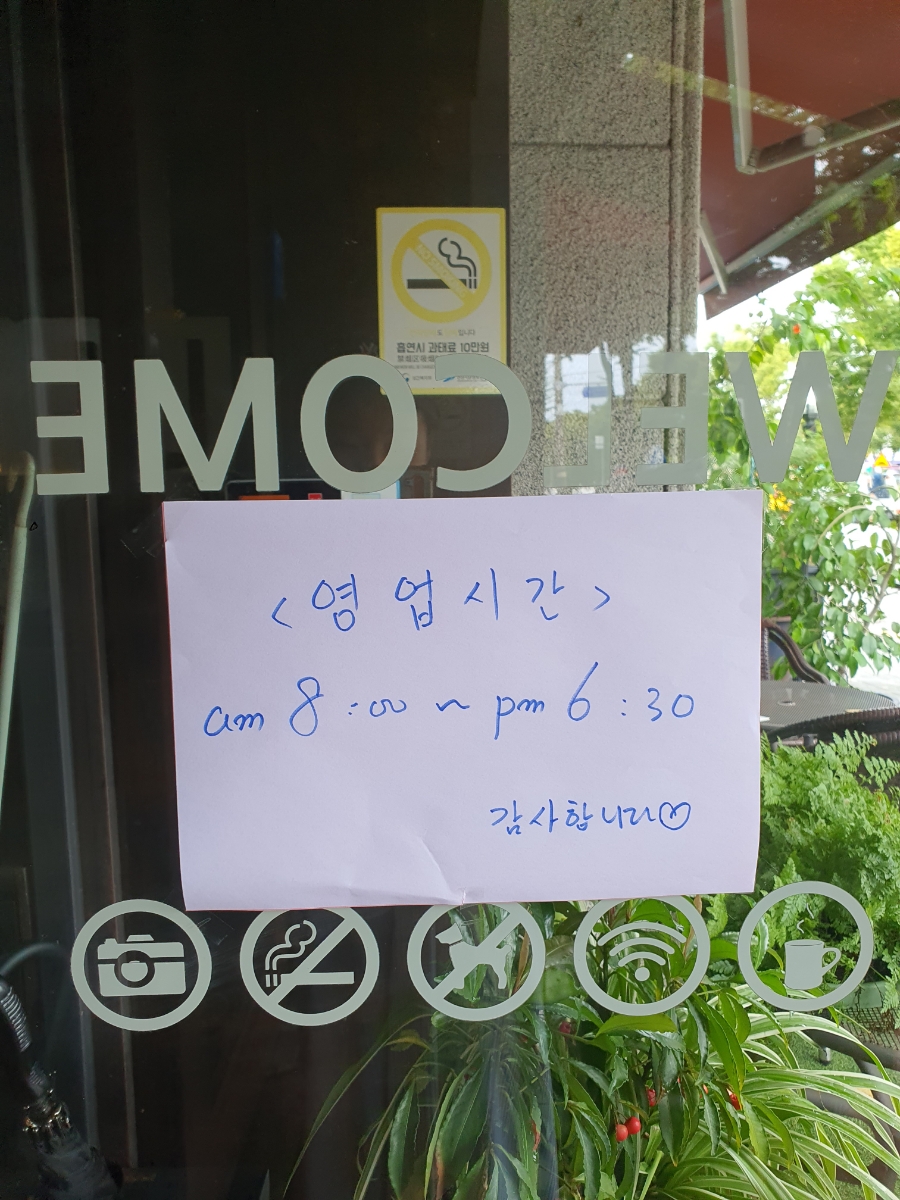 흡연시 과태료 10만원
WELCOME
<영업시간>
am 8:00 ~ pm 6:30
감사합니다♡